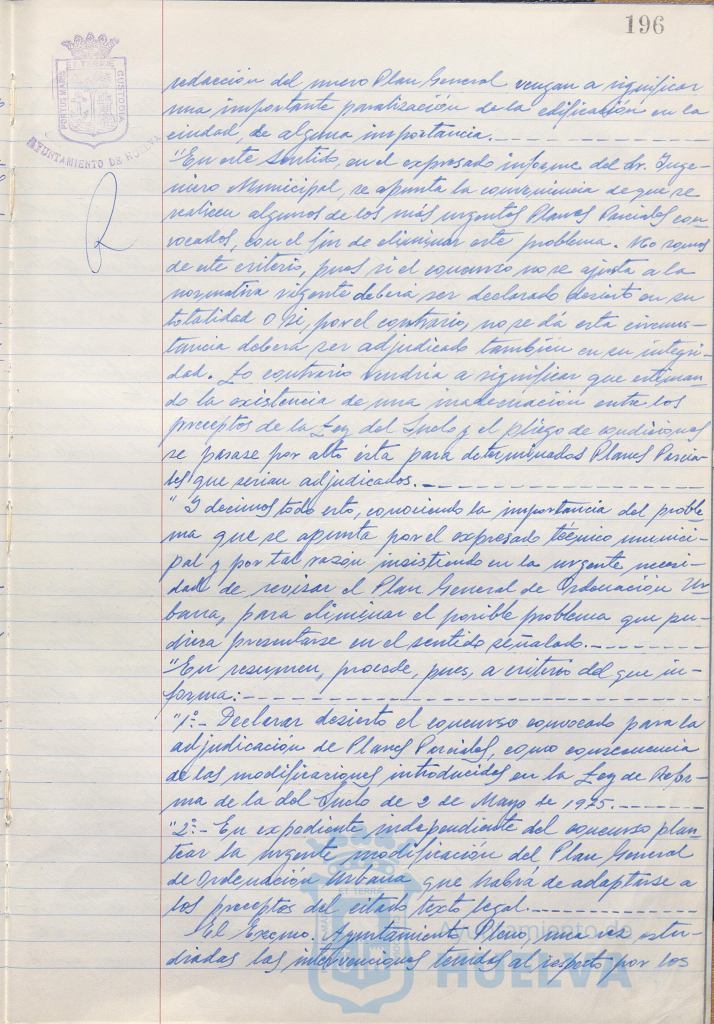 196
PORTUS MARIS
ET TERRE
CUSTODIA
AYUNTAMIENTO DE HUELVA
redacción del nuevo Plan General vengan a significar
una importante paralización de la edificación en la
ciudad, de alguna importancia.
"En este sentido, en el expresado informe del Sr. Inge-
niero Municipal, se apunta la conveniencia de que se
realicen algunos de los más urgentes Planes Parciales con-
vocados, con el fin de eliminar este problema. No somos
de este criterio, pues si el concurso no se ajusta a la
normativa vigente deberá ser declarado desierto en su
totalidad o si, por el contrario, no se dá esta circuns-
tancia deberá ser adjudicado también en su integri-
dad. Lo contrario vendría a significar que estiman-
do la existencia de una inadecuación entre los
preceptos de la Ley del Suelo y el pliego de condiciones
se pasase por alto ésta para determinados Planes Parcia-
les que serían adjudicados.
"Y decimos todo esto, conociendo la importancia del proble-
ma que se apunta por el expresado técnico munici-
pal y por tal razón insistiendo en la urgente necesi-
dad de revisar el Plan General de Ordenación Ur-
bana, para eliminar el posible problema que pu-
diera presentarse en el sentido señalado.
"En resumen, procede, pues, a criterio del que in-
forma:
"1º.- Declarar desierto el concurso convocado para la
adjudicación de Planes Parciales, como consecuencia
de las modificaciones introducidas en la Ley de Refor-
ma de la del Suelo de 2 de Mayo de 1975.
"2º.- En expediente independiente del concurso plan-
tear la urgente modificación del Plan General
de Ordenación Urbana que habrá de adaptarse a
los preceptos del citado texto legal.
El Excmo. Ayuntamiento Pleno, una vez estu-
diadas las intervenciones tenidas al respecto por los
Ayuntamiento de
HUELVA